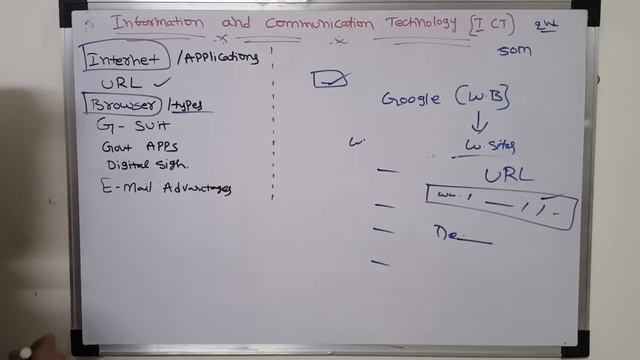 Information and Communication Technology (ICT)
Internet /Applications
URL
Browser /types
G- Suit
Govt APPS
Digital Sigh.
E-Mail Advantages
som
Google (W.B)
W.Sites
W.
URL